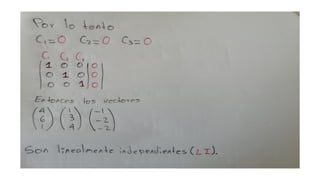 Por lo tanto
C₁=0 C₂=0 C₃=0
C₁ C₂ C₃
1 0 0 | 0
0 1 0 | 0
0 0 1 | 0
Entonces los vectores
(4 (1 (-1
6 3 -2
1) 4) -2)
Son linealmente independientes (LI).